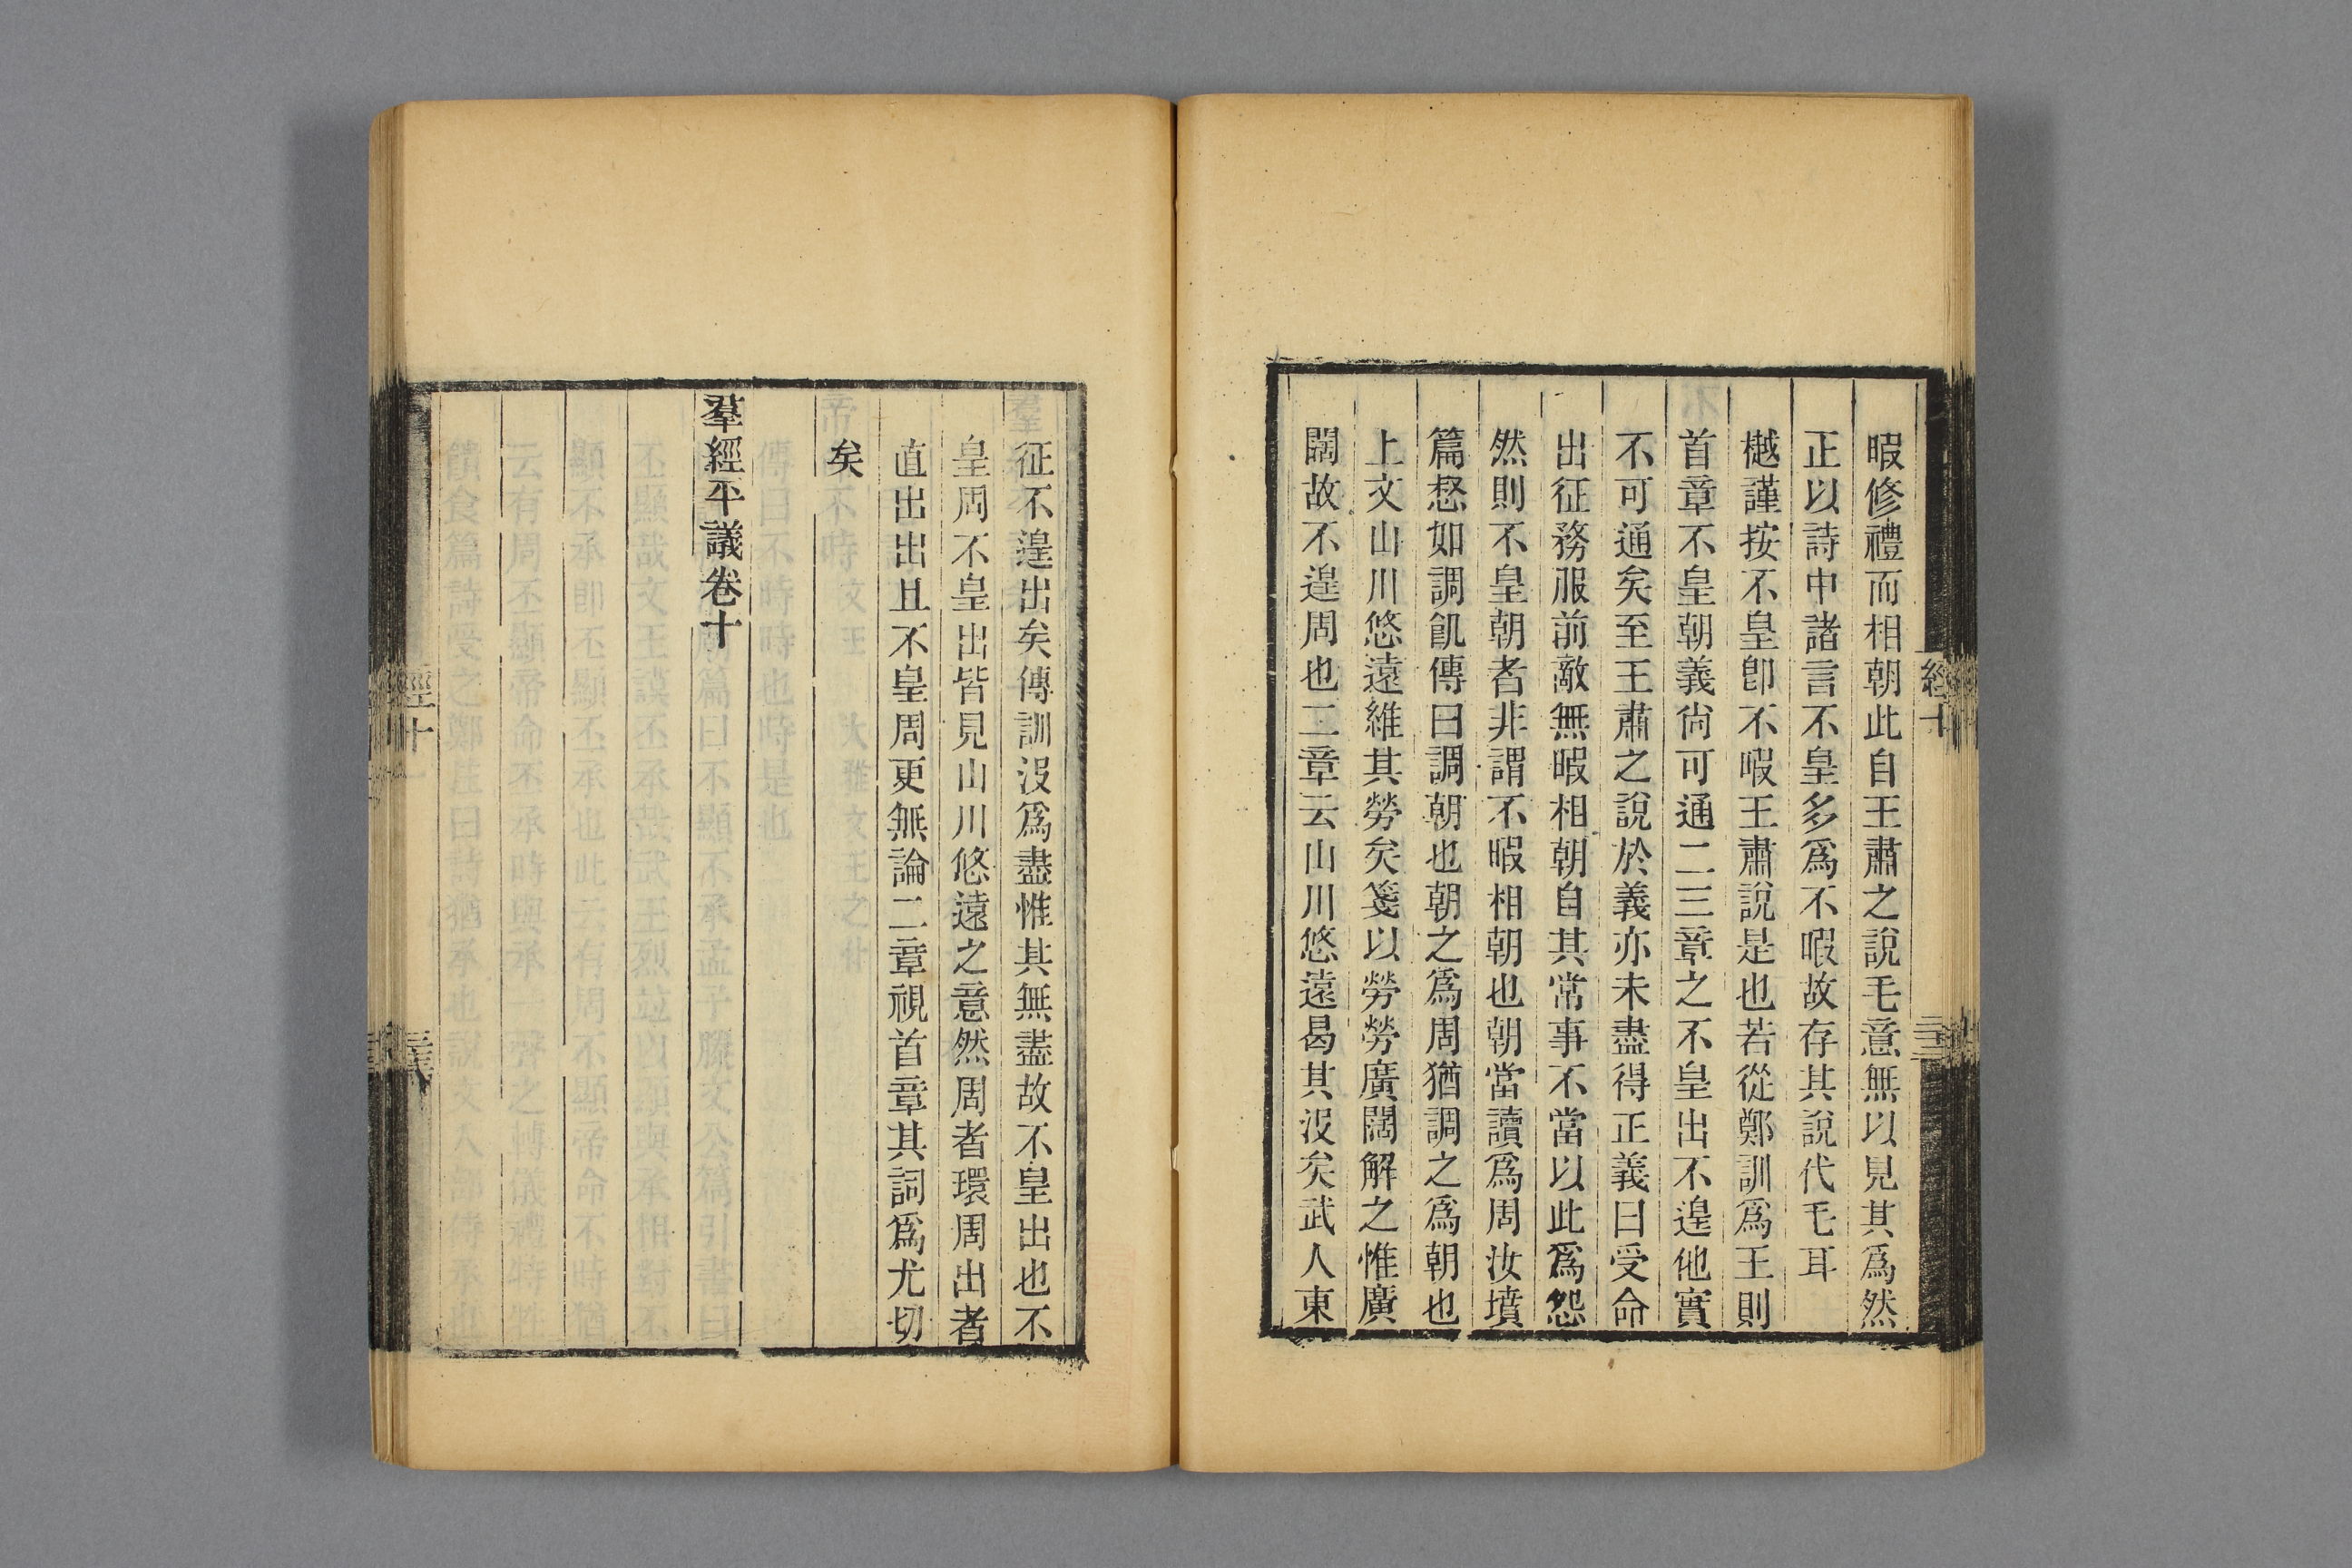 暇修禮而相朝此自王肅之說毛意無以見其爲然
正以詩中諸言不皇多爲不暇故存其說代毛耳
樾謹按不皇卽不暇王肅說是也若從鄭訓爲王則
首章不皇朝義尙可通二三章之不皇出不遑他實
不可通矣至王肅之說於義亦未盡得正義曰受命
出征務服前敵無暇相朝自其常事不當以此爲怨
然則不皇朝者非謂不暇相朝也朝當讀爲周汝墳
篇惄如調飢傳曰調朝也朝之爲周猶調之爲朝也
上文山川悠遠維其勞矣箋以勞勞廣闊解之惟廣
闊故不遑周也二章云山川悠遠曷其沒矣武人東
經十
征不遑出矣傳訓沒爲盡惟其無盡故不皇出也不
皇周不皇出皆見山川悠遠之意然周者環周出者
直出出且不皇周更無論二章視首章其詞爲尤切
矣
羣經平議卷十
經十